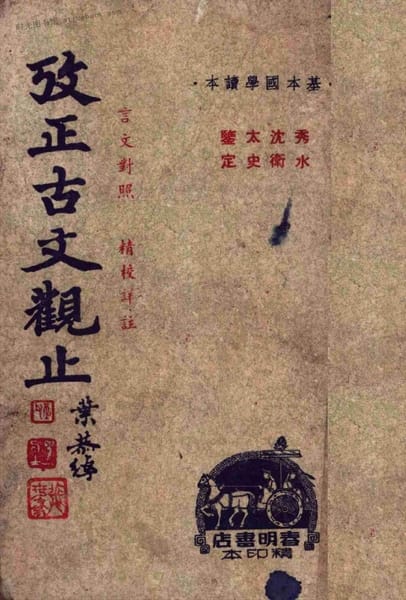 ·基本國學讀本·
秀水
沈衛
太史
鑒定
言文對照 精校詳註
攷正古文觀止
葉恭綽
春明書店
精印本